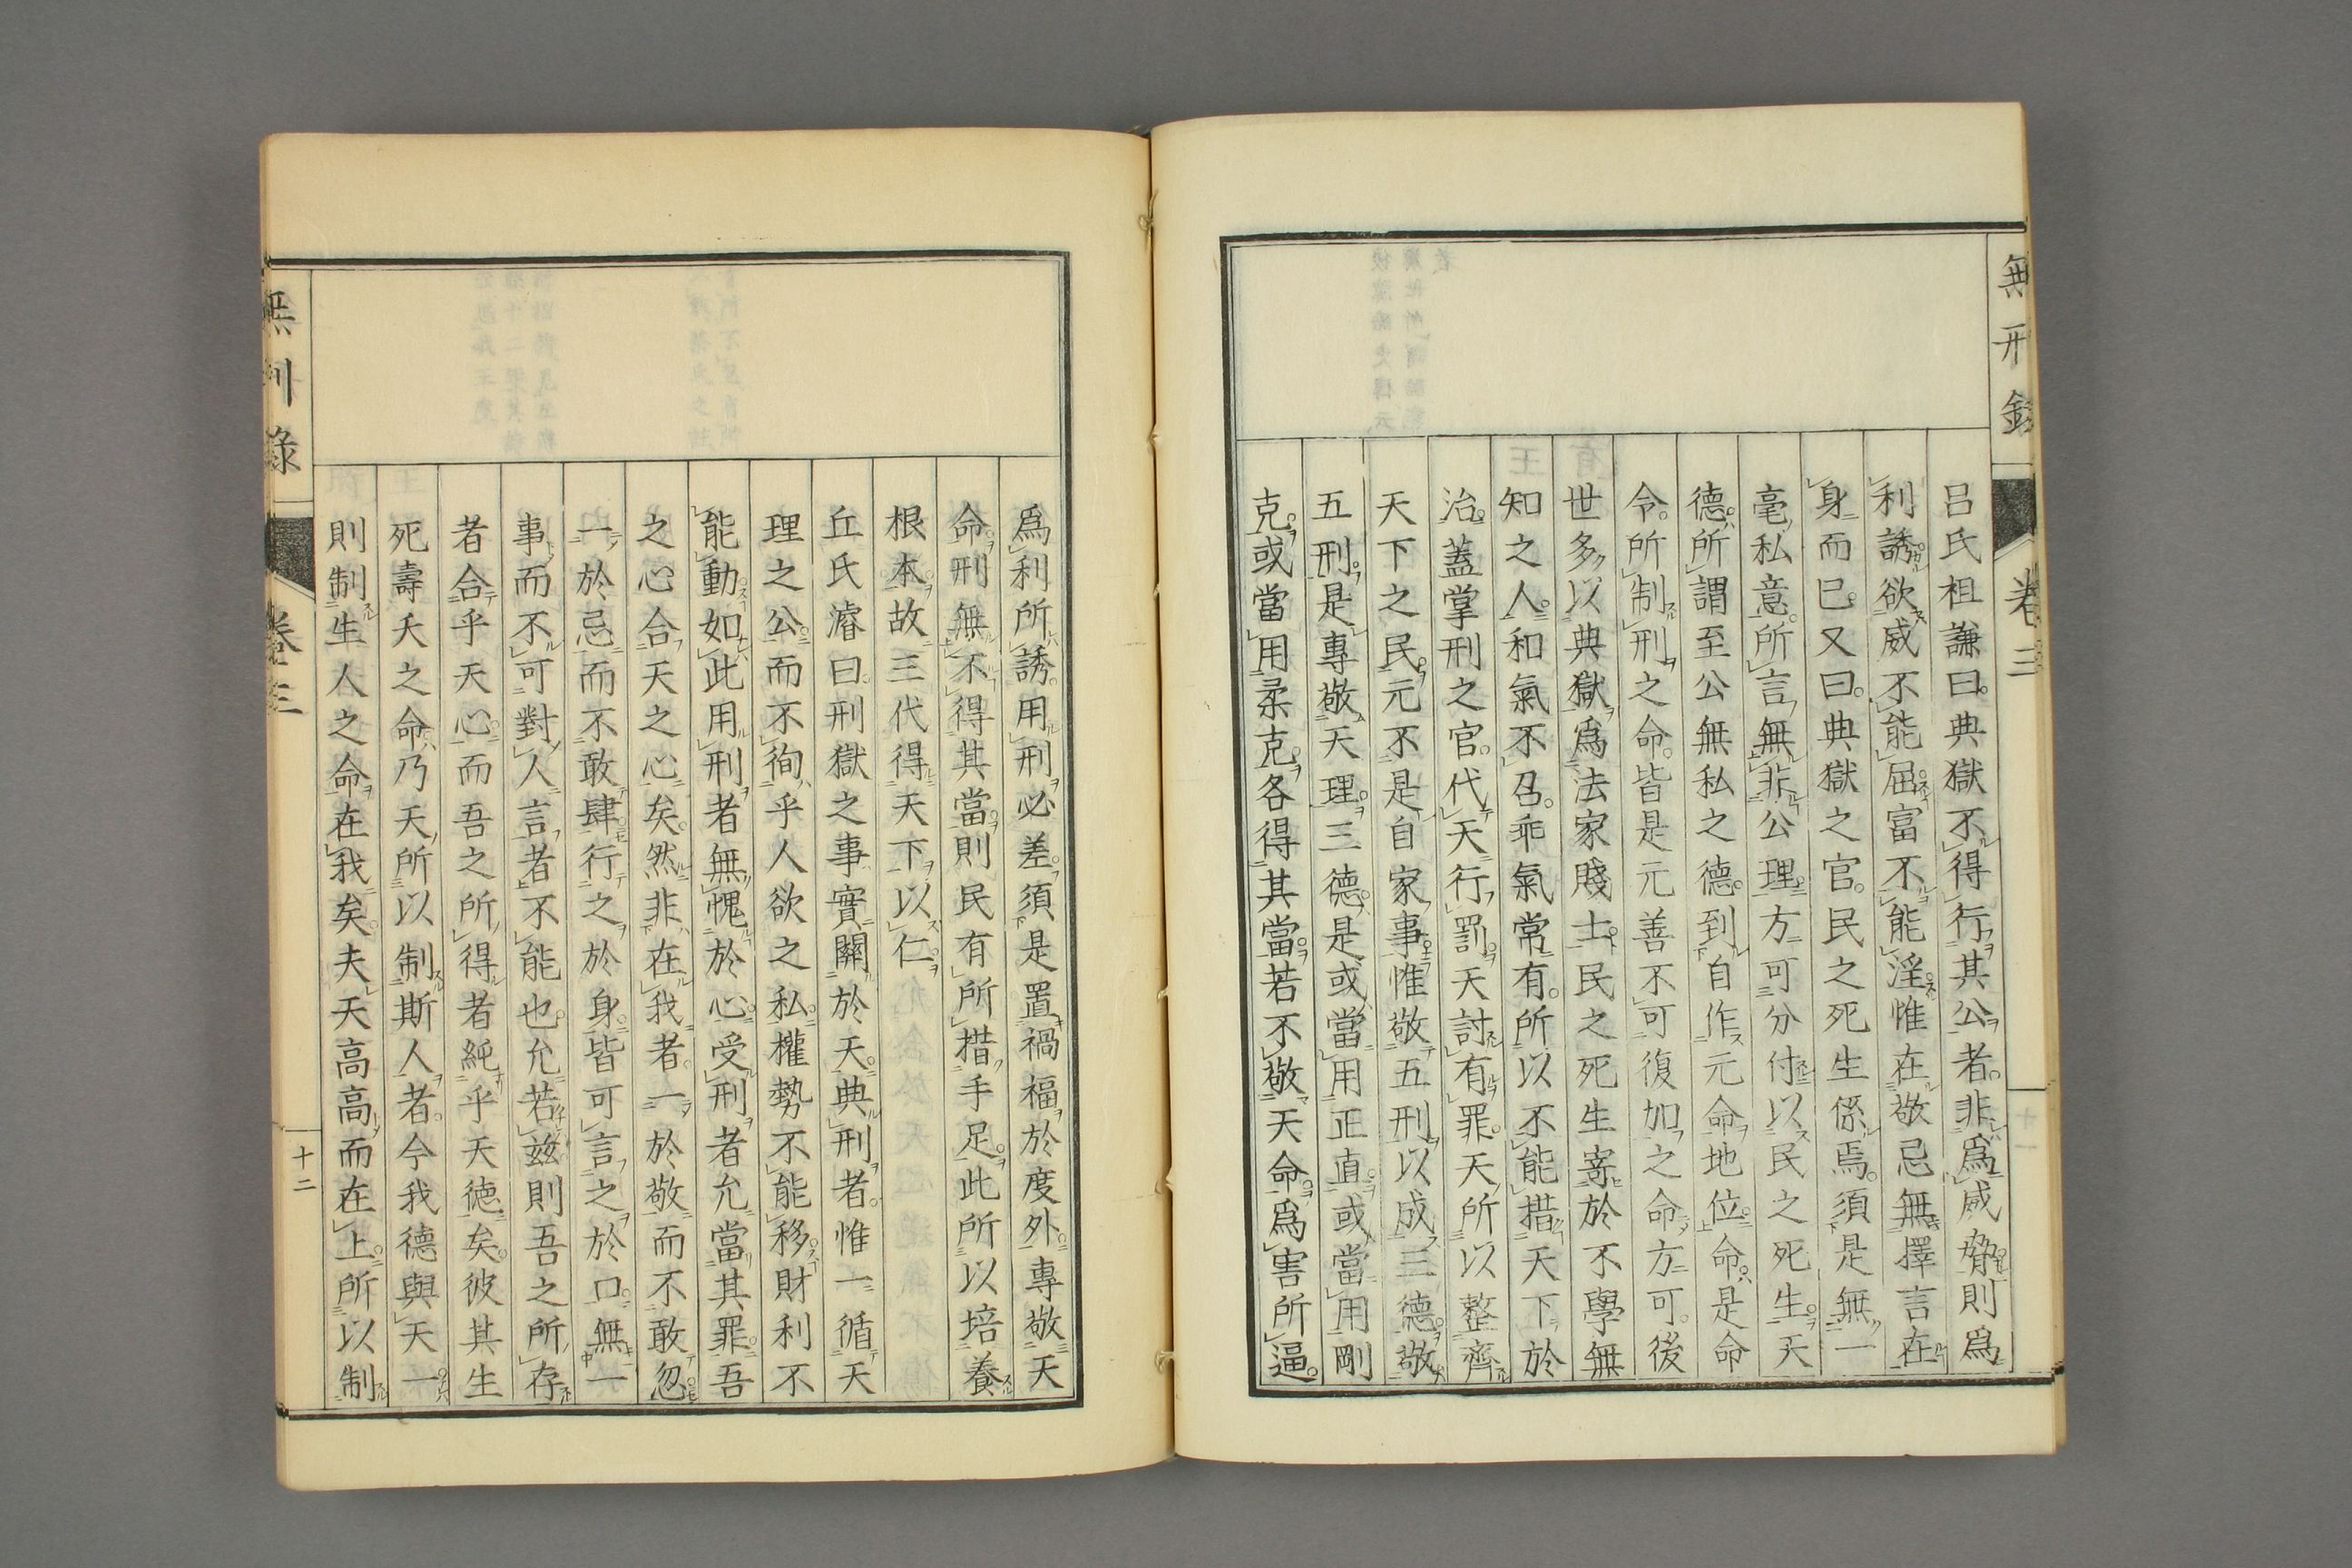 無刑録
卷三
呂氏祖謙曰。典獄不得行其公者。非爲威脅則爲
利誘。欲威不能屈富不能淫惟在敬忌無擇言在
身而已。又曰。典獄之官。民之死生係焉。須是無一
毫私意。所言無非公理。方可分付以民之死生。天
德。所謂至公無私之德。到自作元命地位。命是命
令。所制刑之命。皆是元善不可復加之命方可。後
世多以典獄爲法家賤士。民之死生寄於不學無
知之人。和氣不召。乖氣常有。所以不能措天下於
治。蓋掌刑之官。代天行罰。天討有罪。天所以整齊
天下之民。元不是自家事。惟敬五刑以成三德。敬
五刑。是專敬天理。三德。是或當用正直。或當用剛
克。或當用柔克。各得其當。若不敬天命。爲害所逼。
爲利所誘。用刑必差。須是置禍福於度外。專敬天
命。刑無不得其當。則民有所措手足。此所以培養
根本。故三代得天下以仁。
丘氏濬曰。刑獄之事。實關於天。典刑者。惟一循天
理之公。而不徇乎人欲之私。權勢不能移。財利不
能動。如此用刑者無愧於心。受刑者允當其罪。吾
之心合天之心矣。然非在我者。一於敬而不敢忽
一於忌而不敢肆。行之於身。皆可言之於口。無一
事而不可對人言者。不能也。允若玆則吾之所存
者合乎天心。而吾之所得者純乎天德矣。彼其生
死壽夭之命。乃天所以制斯人者。今我德與天一。
則制生人之命在我矣。夫天高高而在上。所以制
無刑録
卷三
十二